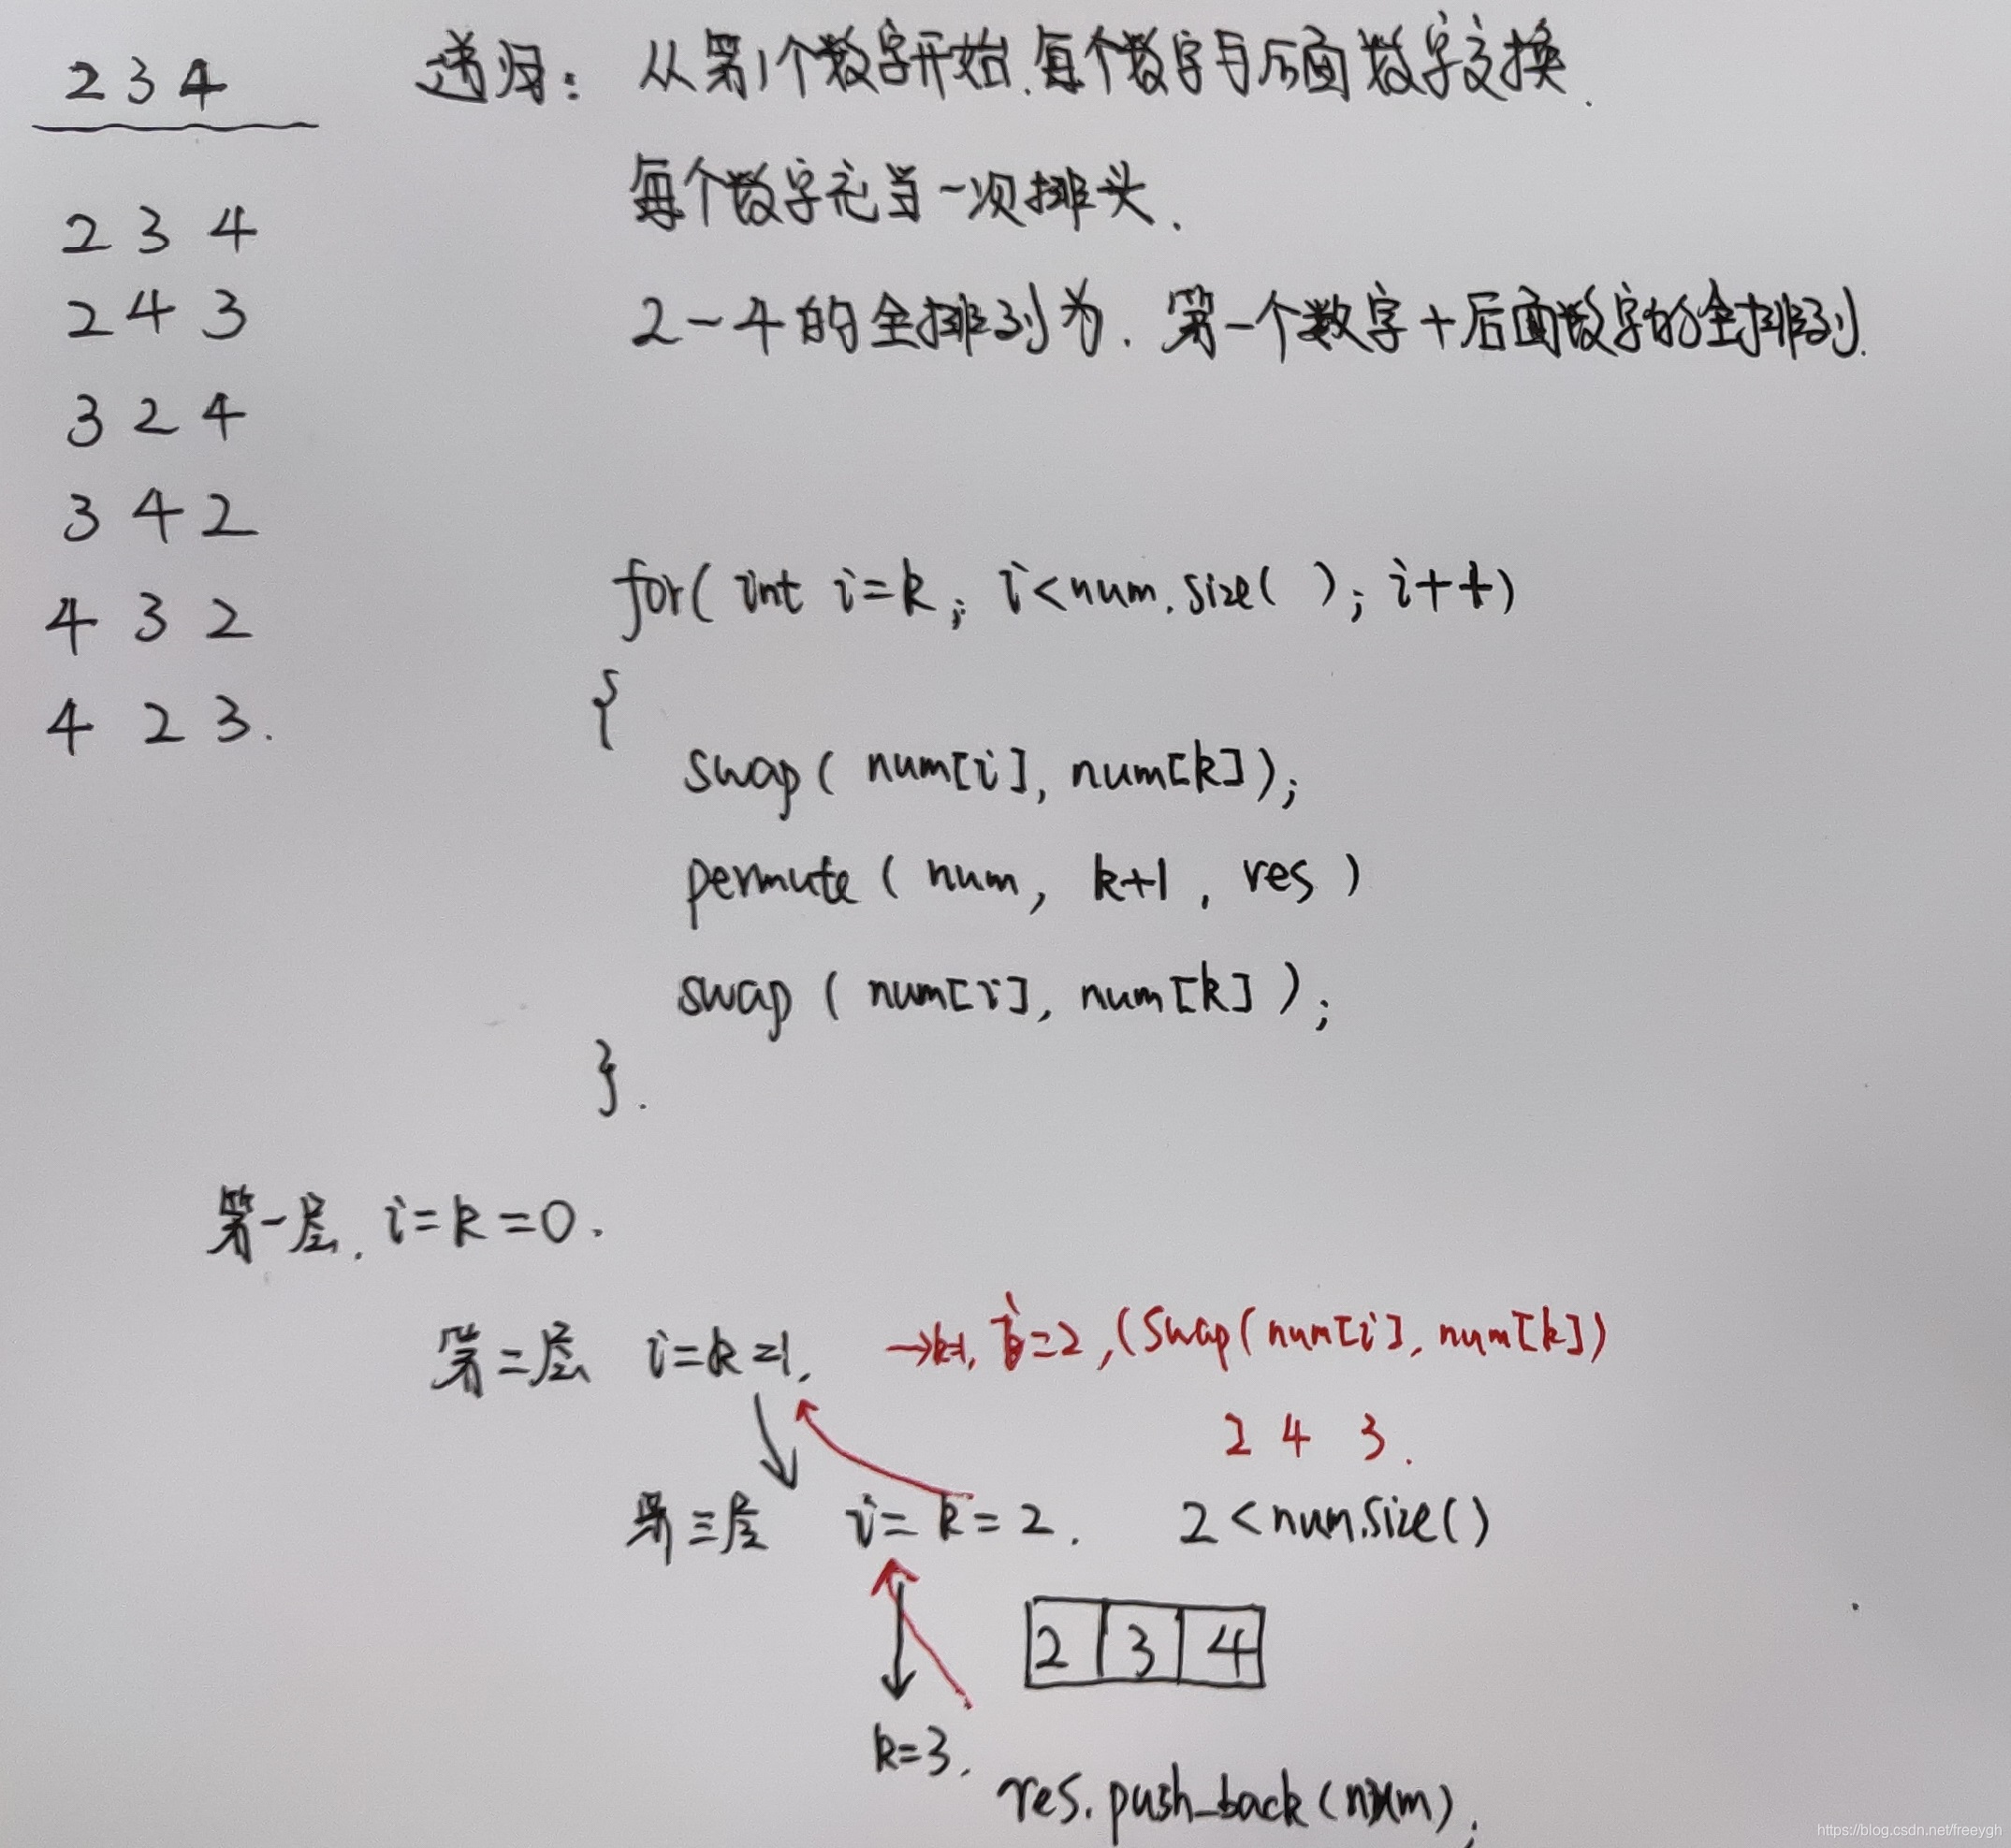 2 3 4
递归: 从第1个数字开始.每个数字与后面数字交换.
每个数字充当一次排头.
2-4的全排列为. 第一个数字+后面数字的全排列.
2 3 4
2 4 3
3 2 4
3 4 2
4 3 2
4 2 3.
for( int i=k; i<num.size( ); i++)
{
swap( num[i], num[k]);
permute ( num, k+1, res )
swap ( num[i], num[k] );
}.
第一层. i=k=0.
第二层 i=k=1, →k=1, i=2, (swap(num[i], num[k])
2 4 3.
第三层 i=k=2. 2<num.size()
2 3 4
k=3.
res.push_back(num);
https://blog.csdn.net/freeygh